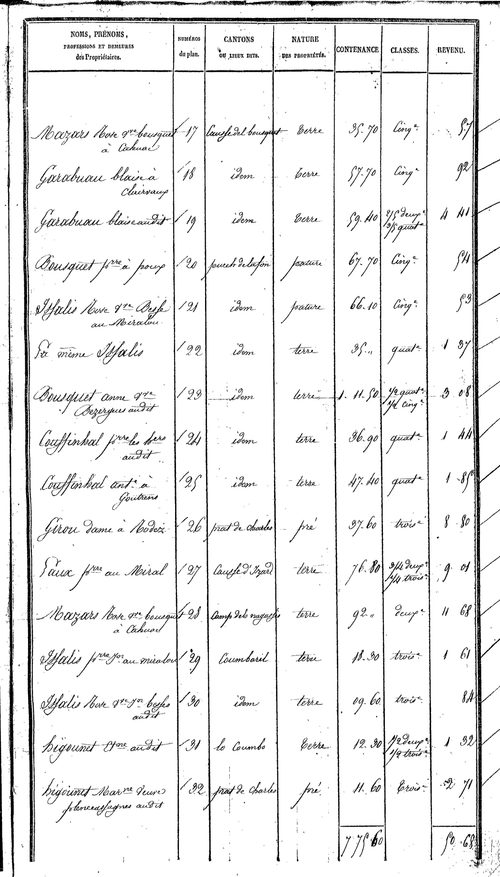 NOMS, PRÉNOMS, PROFESSIONS ET DEMEURES des Propriétaires. NUMÉROS du plan. CANTONS OU LIEUX DITS. NATURE DES PROPRIÉTÉS. CONTENANCE. CLASSES. REVENU.
Mazars Rose vve bousquet 17 Causse del bousquet terre 35.70 Cinqe 57
à Cahuac
Garabuau blaise à 18 idem terre 57.70 Cinqe 92
Clairvaux
Garabuau blaise audit 19 idem terre 59.40 2/5 deuxe 3/5 quate 4 41
Bousquet prre à poux 20 puech de lafon pature 67.70 Cinqe 54
Issalis Rose vve Besse 21 idem pature 66.10 Cinqe 53
au Miralou
La même Issalis 22 idem terre 35.,, quate 1 37
Bousquet anne vve 23 idem terre 1.11.50 1/2 quate 1/2 cinqe 3 08
Bezergues audit
Couffinhal prre les hers 24 idem terre 36.90 quate 1 44
audit
Couffinhal ante à 25 idem terre 47.40 quate 1 85
Goutrens
Girou dame à Rodez 26 prat de charles pré 37.60 troise 8 80
Faux prre au Miral 27 Causse d'Izard terre 76.80 3/4 deuxe 1/4 troise 9 01
Mazars Rose vve bousquet 28 Camp de terre 92.,, deuxe 11 68
à Cahuac
Issalis prre jn au miralou 29 Coumbaril terre 18.30 troise 1 61
Issalis Rose vve jn besses 30 idem terre 09.60 troise 84
audit
higounet audit 31 lo Coumbo terre 12.30 1/2 deuxe 1/2 troise 1 32
higounet 32 prat de charles pré 11.60 troise 2 71
audit
7 75 60 50.68